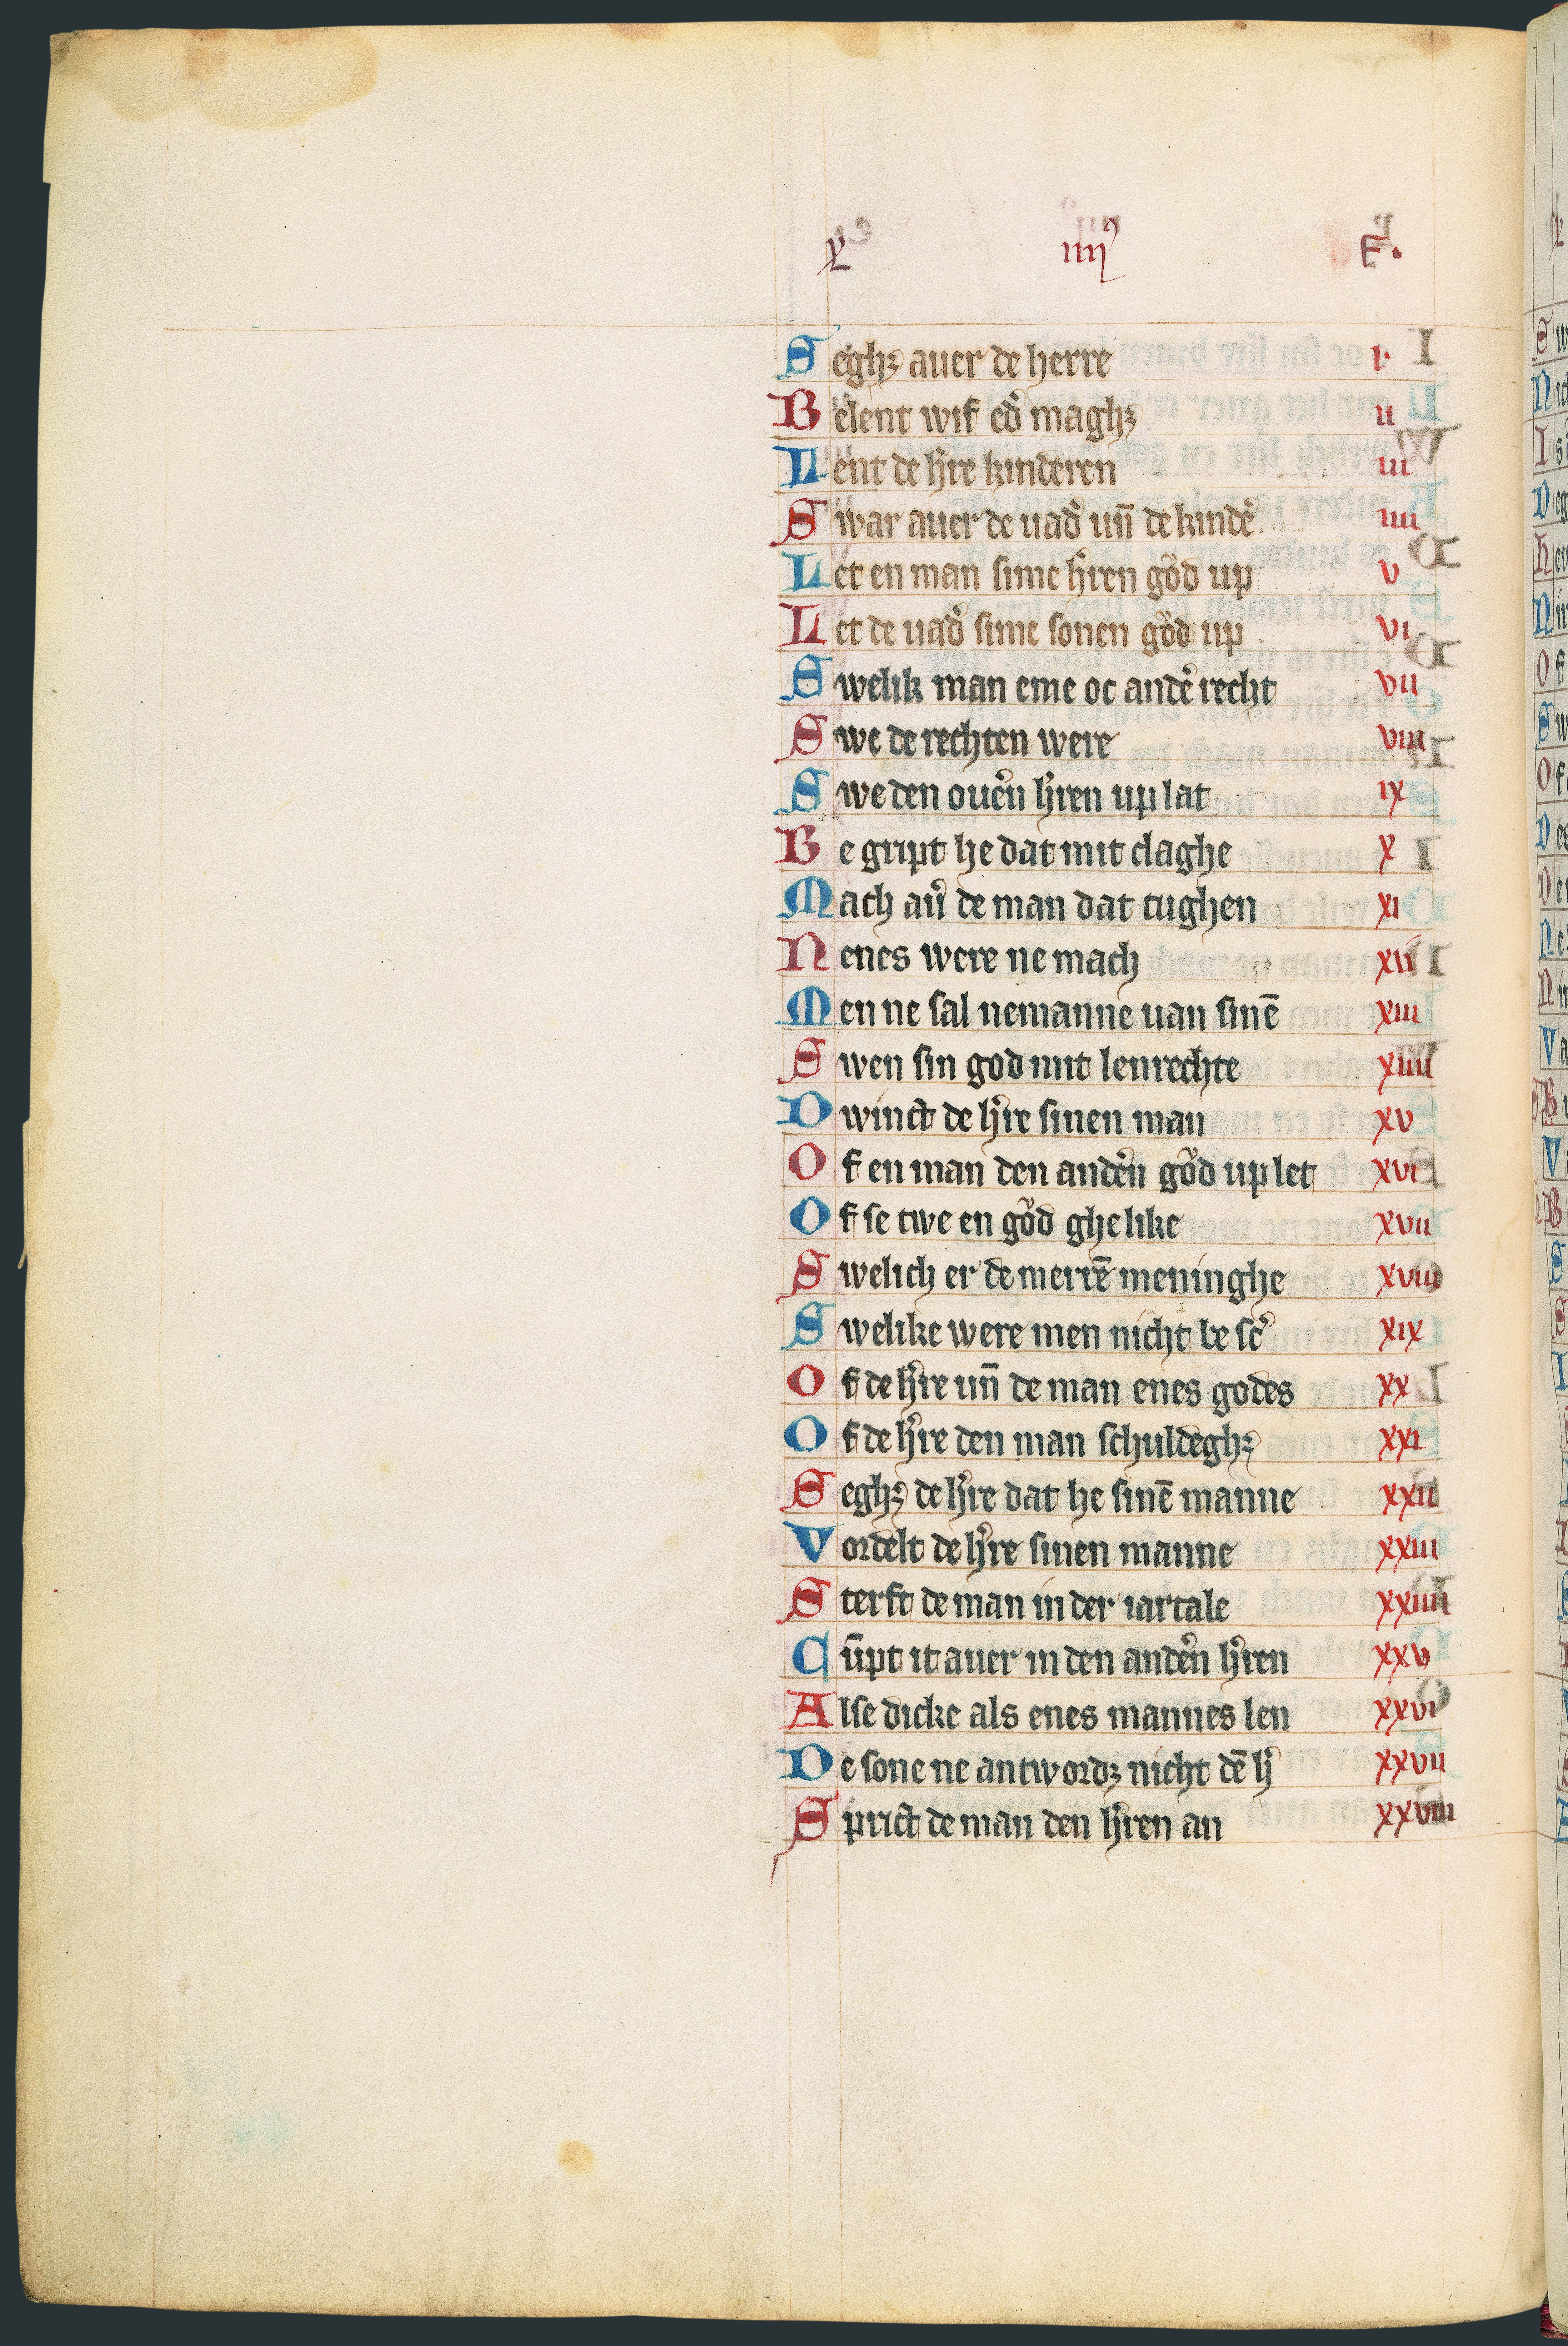 x iiij⁹ F.
Seghꝫ auer de herre i
Belent wif ed̾ maghꝫ ii
Lent de h̾re kinderen iii
Swar auer de uad̾ uñ de kind̾e iiii
Let en man sime h̾ren gͦod up v
Let de uad̾ sime sonen gͦod up vi
Swelik man eme oc and̾e recht vii
Swe de rechten were viii
Swe den ou̾en h̾ren up lat ix
Be gript he dat mit claghe x
Mach au̾ de man dat tughen xi
Nenes were ne mach xii
Men ne sal nemanne uan sinē xiii
Swen sin god mit lenrechte xiiii
Dwinct de h̾re sinen man xv
Of en man den and̾en gͦod up let xvi
Of se twe en gͦod ghelike xvii
Swelich er de merrē meninghe xviii
Swelike were men nicht be sc̾ xix
Of de h̾re uñ de man enes godes xx
Of de h̾re den man schuldeghꝫ xxi
Seghꝫ de h̾re dat he sinē manne xxii
Vordelt de h̾re sinen manne xxiii
Sterft de man in der iartale xxiiii
Cūpt it auer in den and̾en h̾ren xxv
Alse dicke als enes mannes len xxvi
De sone ne antwordꝫ nicht dē h̾ xxvii
Sprict de man den h̾ren an xxviii